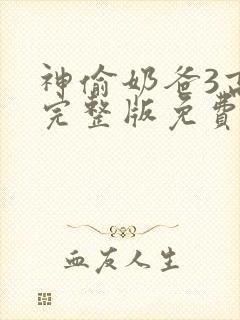 神偷奶爸3高
完整版免費
血友人生